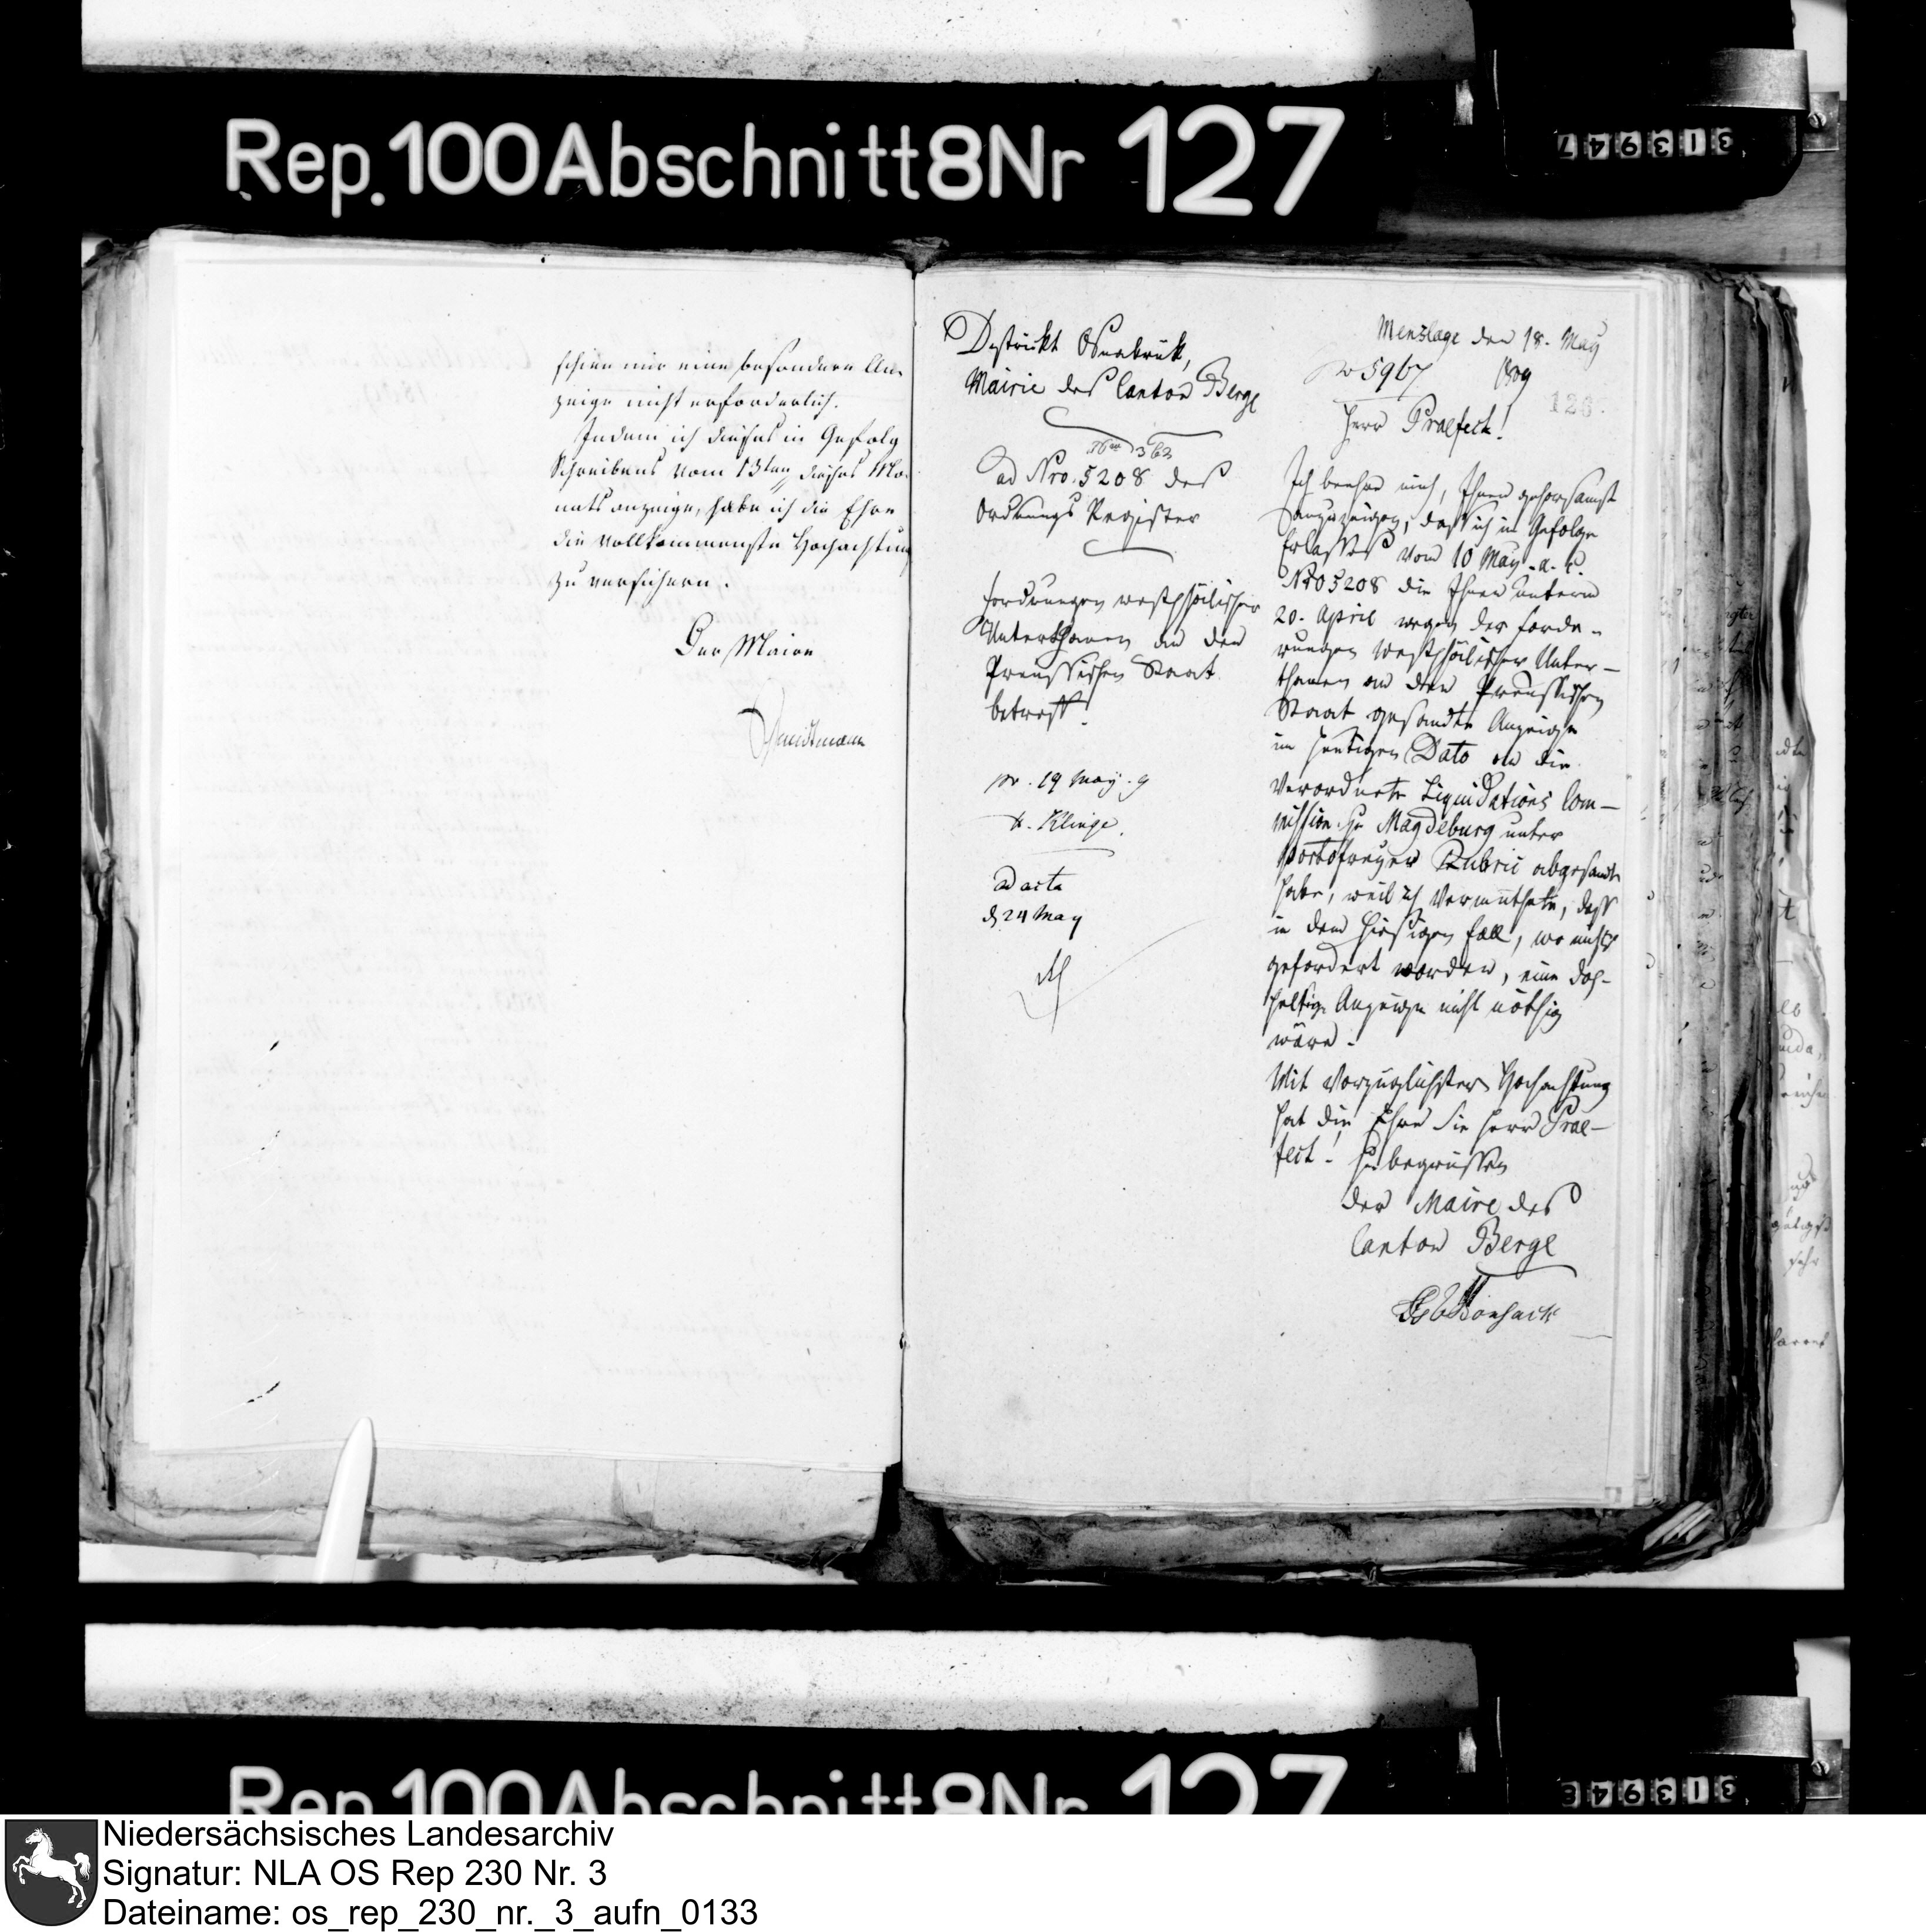 Rep. 100 Abschnitt 8 Nr 127
313947
schien mir eine besondere An-
zeige nicht erforderlich.
Indem ich dieses in Gefolg
Schreibens vom 13ten dieses Mo-
nats anzeige, habe ich die Ehre
die vollkommenste Hochachtung
zu versichern.
Der Maire
Distrikt Osnabrük,
Mairie des Canton Berge
ad Nro. 5208 des
Ordnungs Register
Forderungen westphälischer
Unterthanen an den
Preussischen Staat
betreff.
pr. 19 May. 9
v. Klinge.
ad acta
d. 24 May
Menslage den 18. May
No 5967 1809
126.
Herr Praefect!
Ich beehre mich, Ihnen gehorsamst
anzuzeigen, daß ich in Gefolge
Erlasses vom 10 May. a. c.
Nro 5208 die Ihnen unterm
20. April wegen der Forde-
rungen westphälischer Unter-
thanen an den Preussischen
Staat gesandte Anzeige
im heutigen Dato an die
verordnete Liquidations Com-
mission zu Magdeburg unter
portofreyer Rubric abgesandt
habe, weil ich vermuthete, dass
in dem hiesigen Fall, wo nichts
gefordert worden, eine dop-
pelte Anzeige nicht nöthig
wäre.
Mit vorzüglichster Hochachtung
hat die Ehre Sie Herr Prae-
fect! zu begrüssen
der Maire des
Canton Berge
313948
Rep. 100 Abschnitt 8 Nr 127
Niedersächsisches Landesarchiv
Signatur: NLA OS Rep 230 Nr. 3
Dateiname: os_rep_230_nr._3_aufn_0133